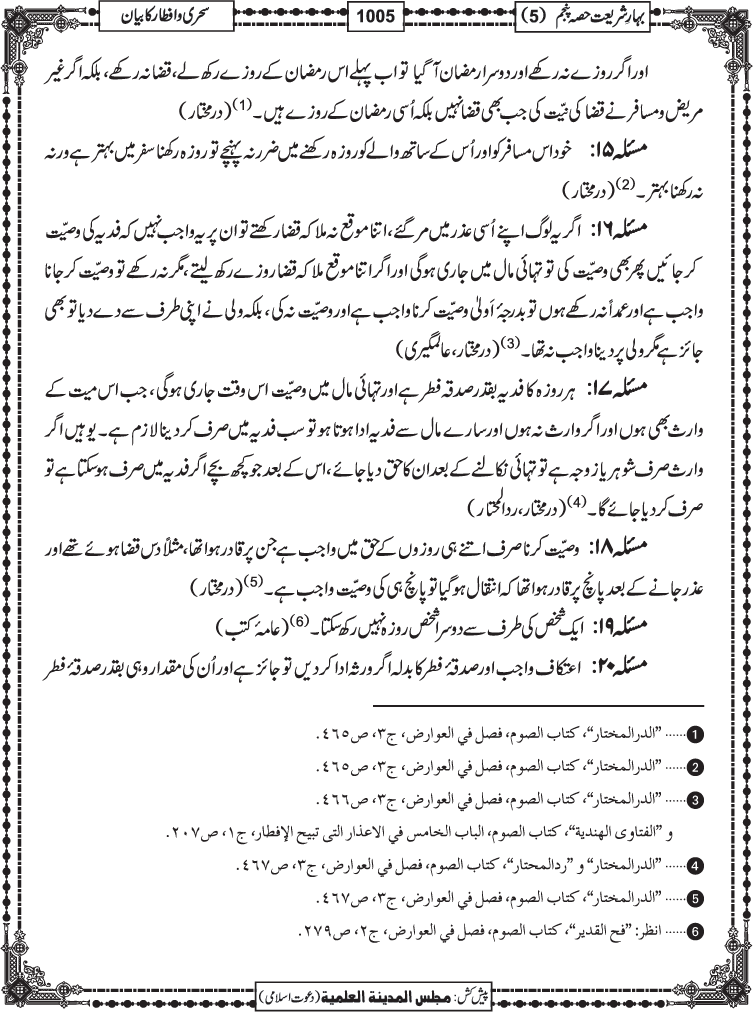 بہارِ شریعت حصہ پنجم (5)
1005
سحری و افطار کا بیان
اور اگر روزے نہ رکھے اور دوسرا رمضان آگیا تو اب پہلے اس رمضان کے روزے رکھ لے، قضا نہ رکھے، بلکہ اگر غیر
مریض و مسافر نے قضا کی نیّت کی جب بھی قضا نہیں بلکہ اُسی رمضان کے روزے ہیں۔ (1) (درمختار)
مسئلہ ۱۵: خود اس مسافر کو اور اُس کے ساتھ والے کو روزہ رکھنے میں ضرر نہ پہنچے تو روزہ رکھنا سفر میں بہتر ہے ورنہ
نہ رکھنا بہتر۔ (2) (درمختار)
مسئلہ ۱۶: اگر یہ لوگ اپنے اُسی عذر میں مر گئے، اتنا موقع نہ ملا کہ قضا رکھتے تو ان پر یہ واجب نہیں کہ فدیہ کی وصیّت
کر جائیں پھر بھی وصیّت کی تو تہائی مال میں جاری ہوگی اور اگر اتنا موقع ملا کہ قضا روزے رکھ لیتے، مگر نہ رکھے تو وصیّت کرجانا
واجب ہے اور عمداً نہ رکھے ہوں تو بدرجۂ اَولیٰ وصیّت کرنا واجب ہے اور وصیّت نہ کی، بلکہ ولی نے اپنی طرف سے دے دیا تو بھی
جائز ہے مگر ولی پر دینا واجب نہ تھا۔ (3) (درمختار، عالمگیری)
مسئلہ ۱۷: ہر روزہ کا فدیہ بقدر صدقہ فطر ہے اور تہائی مال میں وصیّت اس وقت جاری ہوگی، جب اس میت کے
وارث بھی ہوں اور اگر وارث نہ ہوں اور سارے مال سے فدیہ ادا ہوتا ہو تو سب فدیہ میں صرف کر دینا لازم ہے۔ یوہیں اگر
وارث صرف شوہر یا زوجہ ہے تو تہائی نکالنے کے بعد ان کا حق دیا جائے، اس کے بعد جو کچھ بچے اگر فدیہ میں صرف ہوسکتا ہے تو
صرف کر دیا جائے گا۔ (4) (درمختار، ردالمحتار)
مسئلہ ۱۸: وصیّت کرنا صرف اتنے ہی روزوں کے حق میں واجب ہے جن پر قادر ہوا تھا، مثلاً دس قضا ہوئے تھے اور
عذر جانے کے بعد پانچ پر قادر ہوا تھا کہ انتقال ہوگیا تو پانچ ہی کی وصیّت واجب ہے۔ (5) (درمختار)
مسئلہ ۱۹: ایک شخص کی طرف سے دوسرا شخص روزہ نہیں رکھ سکتا۔ (6) (عامۂ کتب)
مسئلہ ۲۰: اعتکاف واجب اور صدقۂ فطر کا بدلہ اگر ورثہ ادا کر دیں تو جائز ہے اور اُن کی مقدار وہی بقدر صدقۂ فطر
1 ...... "الدرالمختار"، کتاب الصوم، فصل في العوارض، ج۳، ص۴۶۵.
2 ...... "الدرالمختار"، کتاب الصوم، فصل في العوارض، ج۳، ص۴۶۵.
3 ...... "الدرالمختار"، کتاب الصوم، فصل في العوارض، ج۳، ص۴۶۶.
و "الفتاوی الهندية"، کتاب الصوم، الباب الخامس في الاعذار التی تبیح الإفطار، ج۱، ص۲۰۷.
4 ...... "الدرالمختار" و "ردالمحتار"، کتاب الصوم، فصل في العوارض، ج۳، ص۴۶۷.
5 ...... "الدرالمختار"، کتاب الصوم، فصل في العوارض، ج۳، ص۴۶۷.
6 ...... انظر: "فح القدیر"، کتاب الصوم، فصل في العوارض، ج۲، ص۲۷۹.
پیش کش: مجلس المدینة العلمیة (دعوت اسلامی)